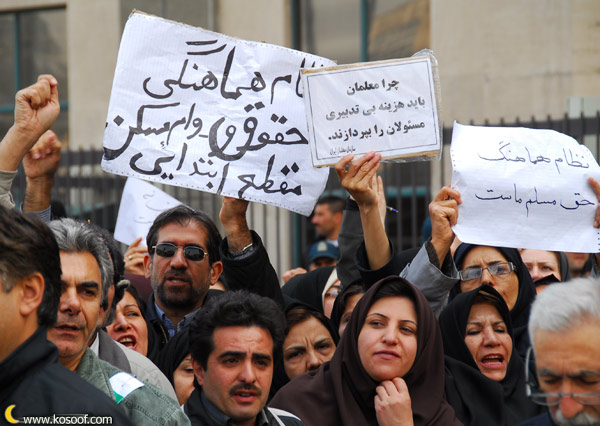 نظام هماهنگی
حقوق و وام مسکن
مقطع ابتدایی
چرا معلمان
باید هزینه بی تدبیری
مسئولان را بپردازند.
نظام هماهنگ
حق مسلم ماست
www.kosoof.com